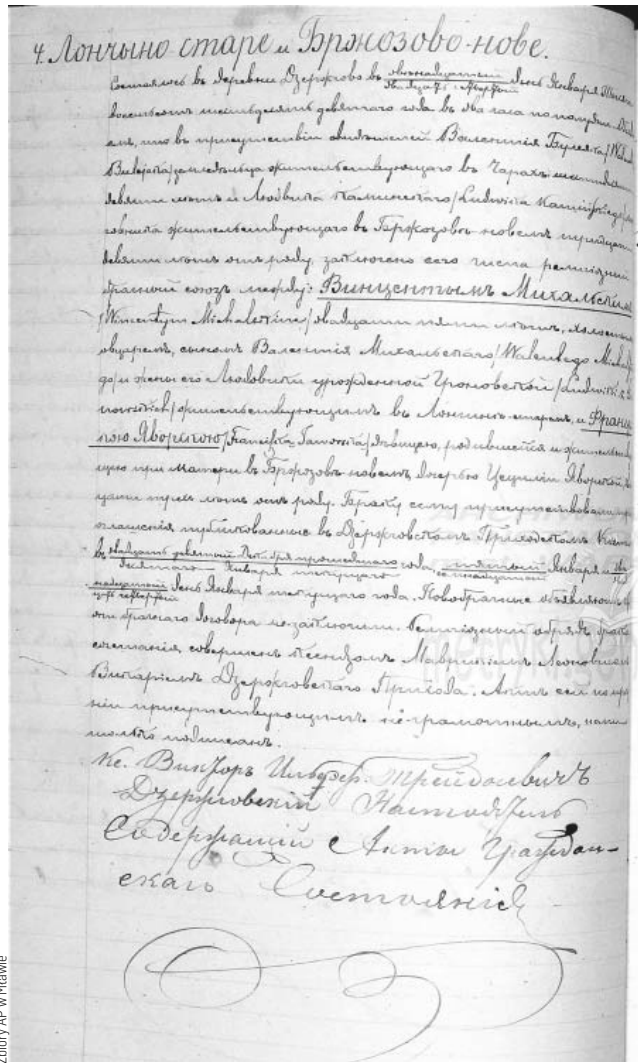 4. Лончыно-старе и Бржозово-нове.
Состоялось въ деревнѣ Дзержгово въ двѣнадцатый день Января Тысяча
двадцать четвертый
восемьсотъ шестьдесятъ девятаго года въ два часа по полудни.
что въ присутствіи свидѣтелей Валентія
земледѣльца жительствующаго въ Чарахъ шестидесяти
девяти лѣтъ и Людвика Каминскаго /Ludwika Kamińskiego/
жительствующаго въ Бржозовѣ-новемъ тридцати
девяти лѣтъ отъ роду, заключено сего числа религіозный
брачный союзъ между: Винцентымъ Михальскимъ
/Wincentym Michalskim/ двадцати пяти лѣтъ, холостымъ
овчаремъ, сыномъ Валентія Михальскаго /Walentego Michalskie
go/ и жены его Людовики урожденной Громовской /Ludwiki
жительствующимъ въ Лончинѣ-старемъ, и Франциш
кою Яворскою /Franciszką Jaworską/ дѣвицею, родившеюся и жительствую
щею при матери въ Бржозовѣ-новемъ дочерью Цециліи Яворской,
цати трехъ лѣтъ отъ роду. Браку сему предшествовали три
оглашенія публикованные въ Дзержговскомъ Приходскомъ Костелѣ
въ двадцать девятый Декабря прошедшаго года, пятый Января и
десятаго Января текущаго семнадцатый
надцатый день Января текущаго года. Новобрачные объявляютъ
что брачнаго договора не заключили. Религіозный обрядъ брако
сочетанія совершенъ Ксендзомъ Маврикіемъ
Викаріемъ Дзержговскаго Прихода. Актъ сей по прочте
ніи присутствующимъ неграмотнымъ, нами
только подписанъ.
Кс. Викторъ
Дзержговскій Настоятель
Содержащій Акты Граждан-
скаго Состоянія
Zbiory AP w Mławie